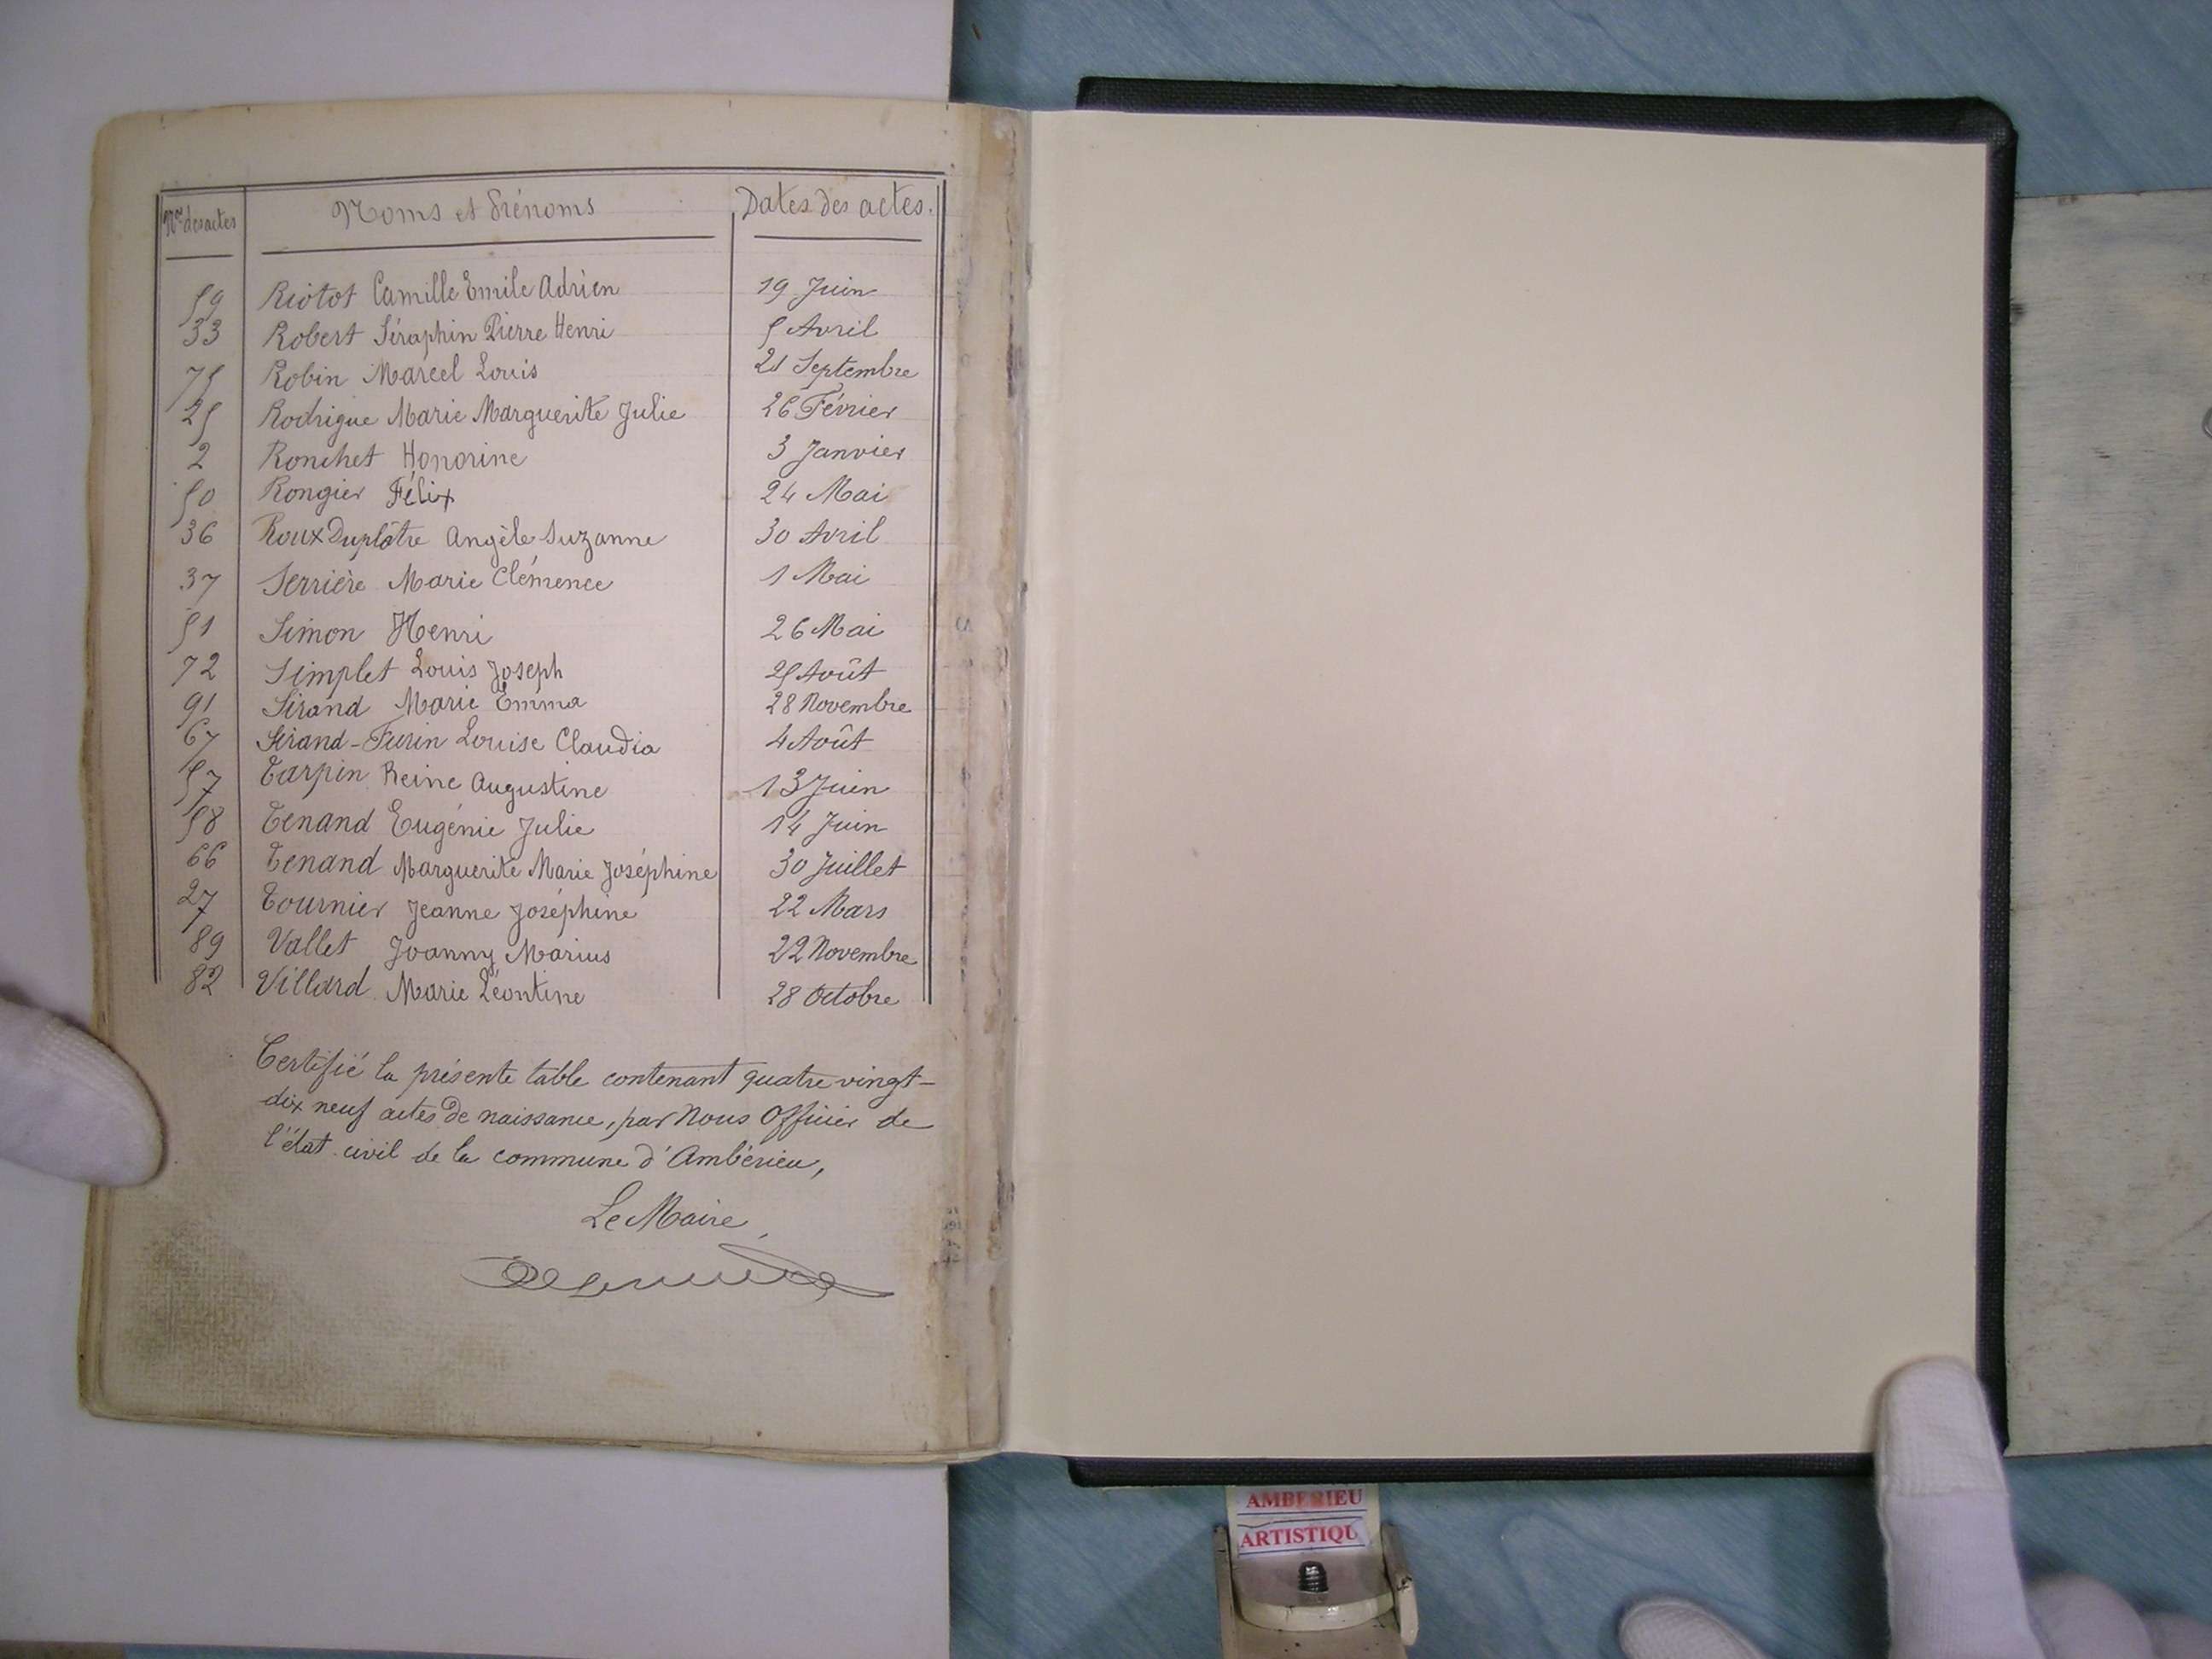 Nos des actes Noms et Prénoms Dates des actes.
59 Riotot Camille Emile Adrien 19 Juin
33 Robert Séraphin Pierre Henri 5 Avril
75 Robin Marcel Louis 21 Septembre
25 Rodrigue Marie Marguerite Julie 26 Février
2 Ronchet Honorine 3 Janvier
50 Rongier Félix 24 Mai
36 Roux Duplâtre Angèle Suzanne 30 Avril
37 Serrière Marie Clémence 1 Mai
51 Simon Henri 26 Mai
72 Simplet Louis Joseph 25 Août
91 Sirand Marie Emma 28 Novembre
67 Sirand-Furin Louise Claudia 4 Août
57 Tarpin Reine Augustine 13 Juin
58 Tenand Eugénie Julie 14 Juin
66 Tenand Marguerite Marie Joséphine 30 Juillet
27 Tournier Jeanne Joséphine 22 Mars
89 Vallet Joanny Marius 22 Novembre
82 Villard Marie Léontine 28 Octobre
Certifié la présente table contenant quatre vingt-
dix neuf actes de naissance, par Nous Officier de
l'état civil de la commune d'Ambérieu,
Le Maire,
AMBERIEU
ARTISTIQU